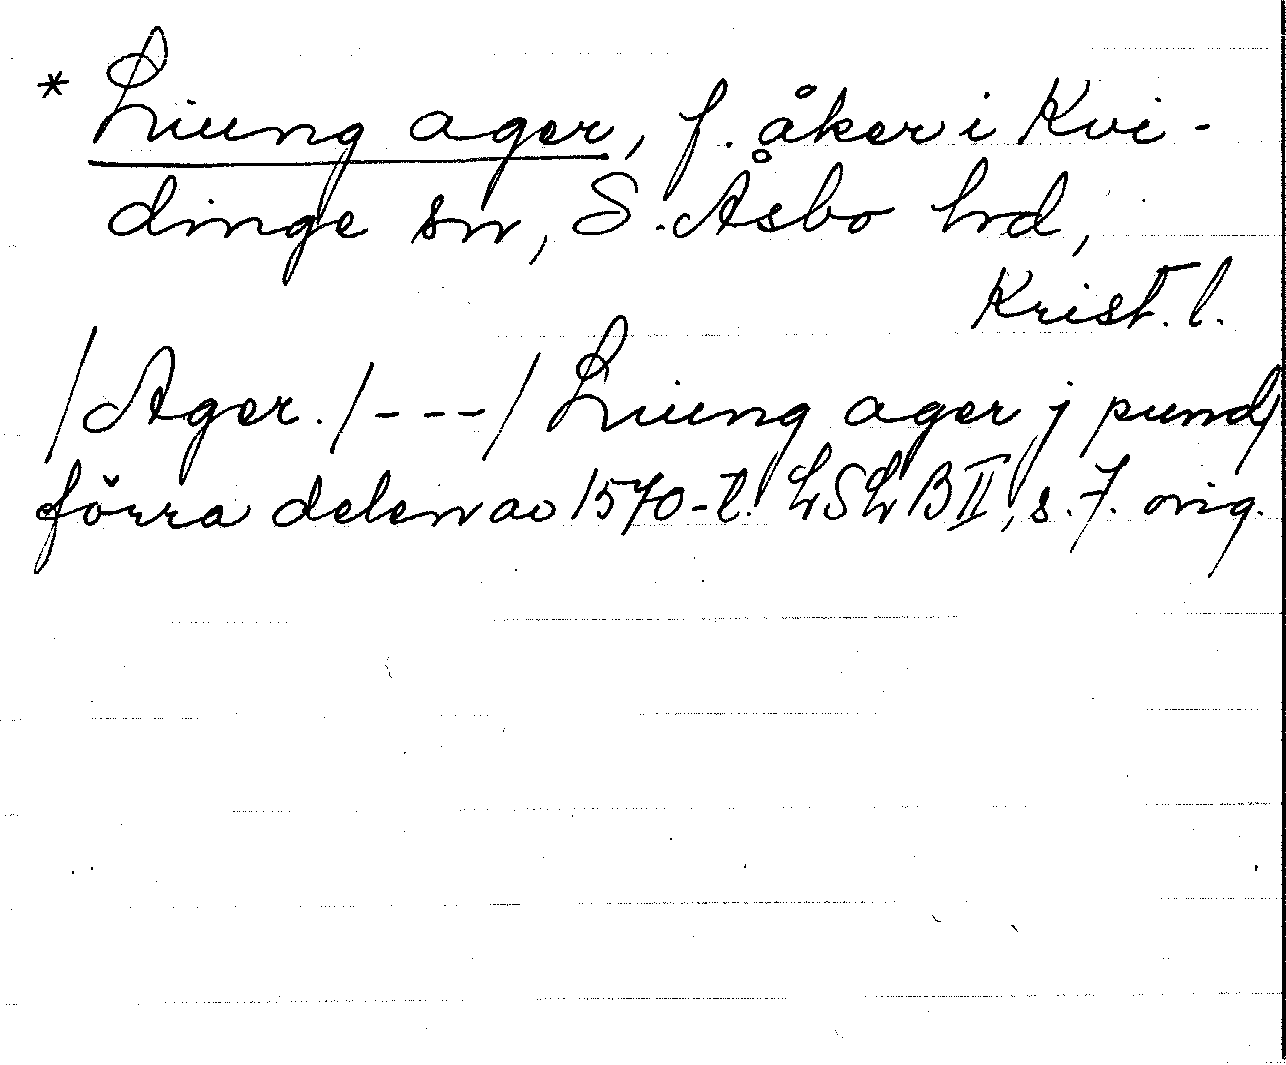 * Liung ager, f. åker i Kvi-
dinge sn, S. Åsbo hd,
Krist. l.
/Ager./---/ Liung ager j pund/
förra delen av 1570-t. LSLB II, s. 7. orig.